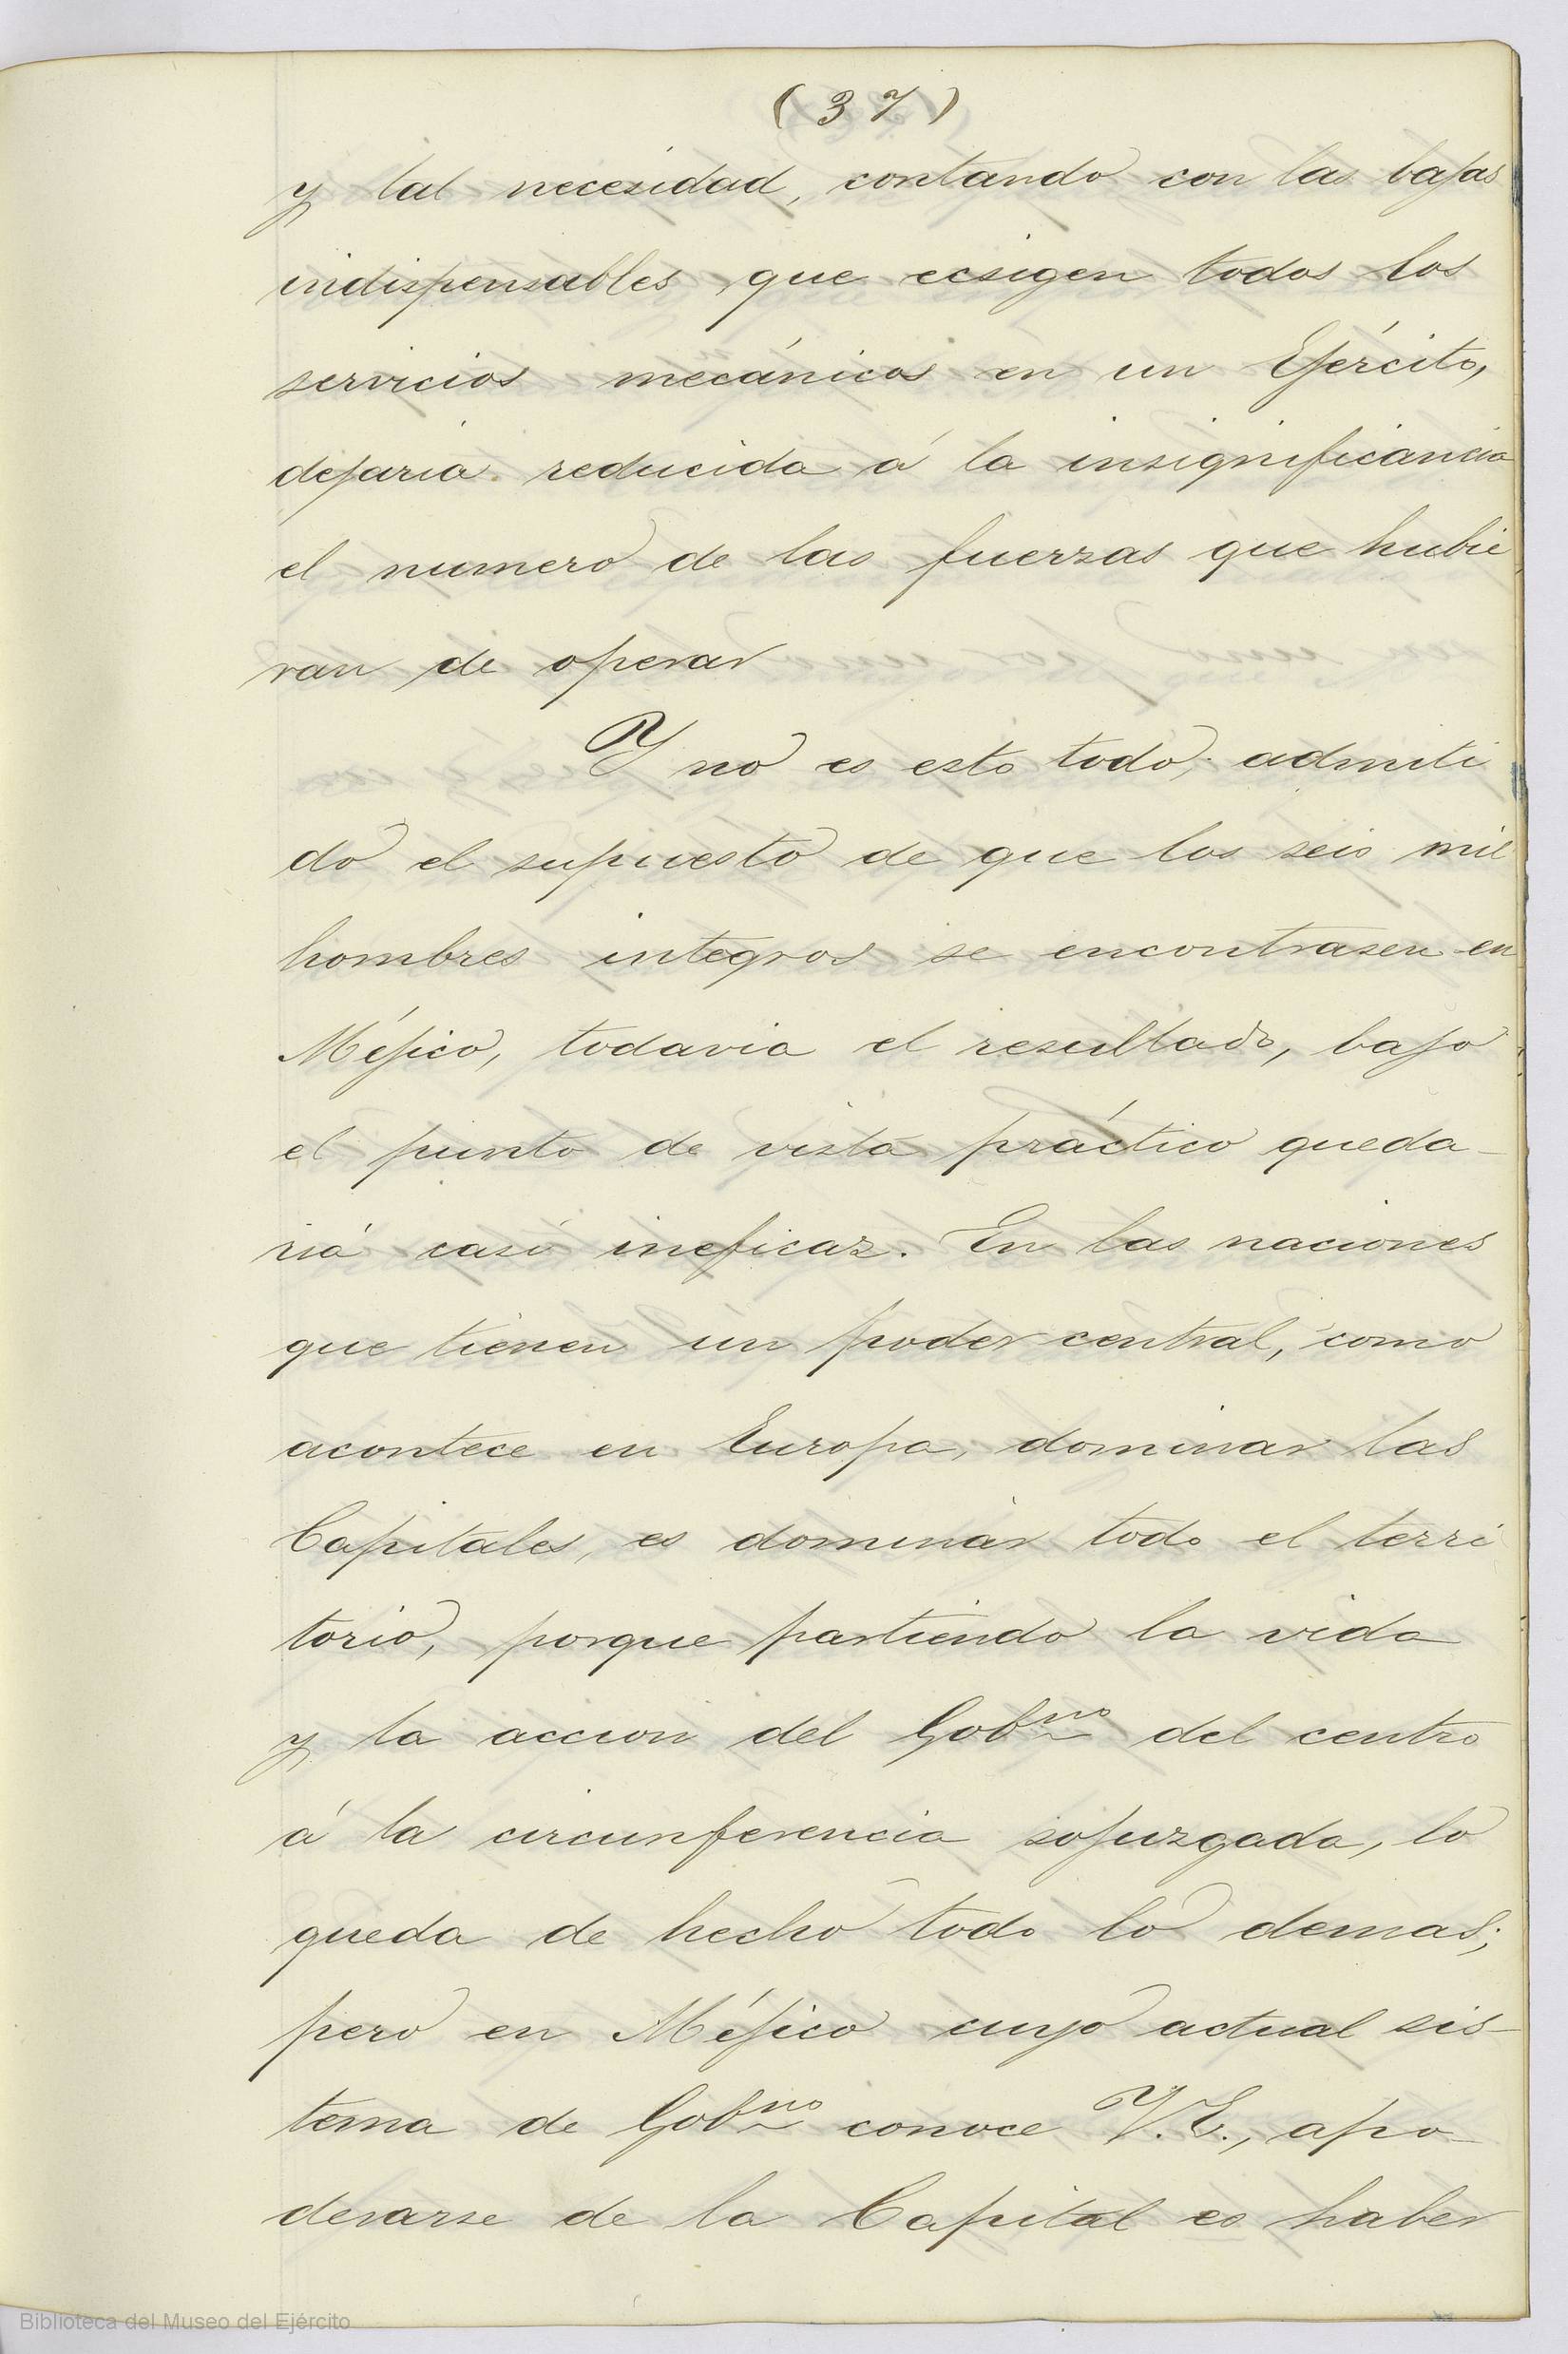 (37)
y tal necesidad, contando con las bajas
indispensables que ecsigen todos los
servicios mecánicos en un Ejército,
dejaria reducida á la insignificancia
el numero de las fuerzas que hubie
ran de operar
Y no es esto todo; admiti
do el supuesto de que los seis mil
hombres integros se encontrasen en
Méjico, todavia el resultado, bajo
el punto de vista práctico queda-
ria casi ineficaz. En las naciones
que tienen un poder central, como
acontece en Europa, dominar las
Capitales, es dominar todo el terri
torio, porque partiendo la vida
y la accion del Gobno del centro
á la circunferencia sojuzgada, lo
queda de hecho todo lo demas;
pero en Méjico cuyo actual sis-
tema de Gobno conoce V.E., apo-
derarse de la Capital es haber
Biblioteca del Museo del Ejército